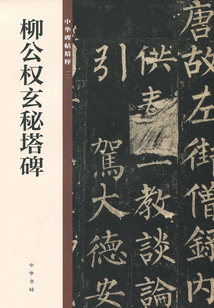 柳公权玄秘塔碑
中华碑帖精粹
中华书局
唐故左街僧録内
供奉三教談論
引駕大德安